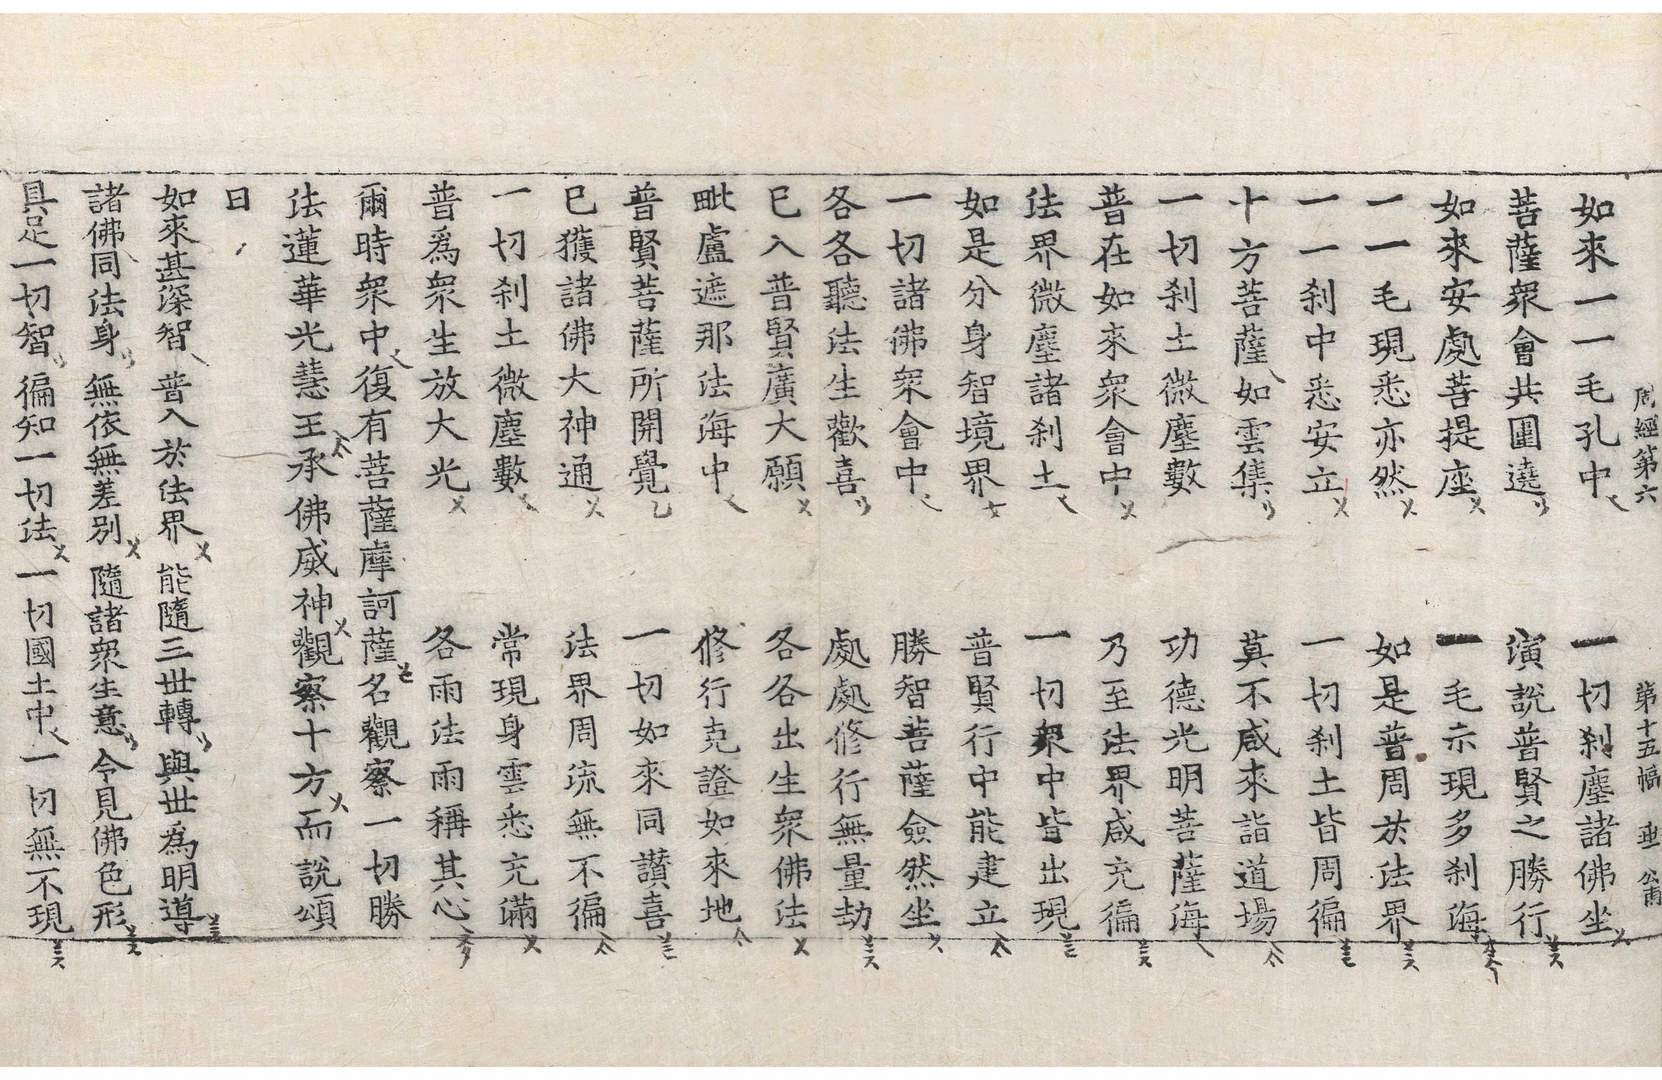 周經第六 第十五幅 
如來一一毛孔中 一切刹塵諸佛坐
菩薩衆會共圍遶 演說普賢之勝行
如來安處菩提座 一毛示現多刹海
一一毛現悉亦然 如是普周於法界
一一刹中悉安立 一切刹土皆周徧
十方菩薩如雲集 莫不咸來詣道場
一切刹土微塵數 功德光明菩薩海
普在如來衆會中 乃至法界咸充徧
法界微塵諸刹土 一切衆中皆出現
如是分身智境界 普賢行中能建立
一切諸佛衆會中 勝智菩薩僉然坐
各各聽法生歡喜 處處修行無量劫
已入普賢廣大願 各各出生衆佛法
毗盧遮那法海中 修行克證如來地
普賢菩薩所開覺 一切如來同讚喜
已獲諸佛大神通 法界周流無不徧
一切刹土微塵數 常現身雲悉充滿
普爲衆生放大光 各雨法雨稱其心
爾時衆中復有菩薩摩訶薩名觀察一切勝
法蓮華光慧王承佛威神觀察十方而說頌
曰
如來甚深智 普入於法界 能隨三世轉 與世爲明導
諸佛同法身 無依無差别 隨諸衆生意 令見佛色形
具足一切智 徧知一切法 一切國土中 一切無不現